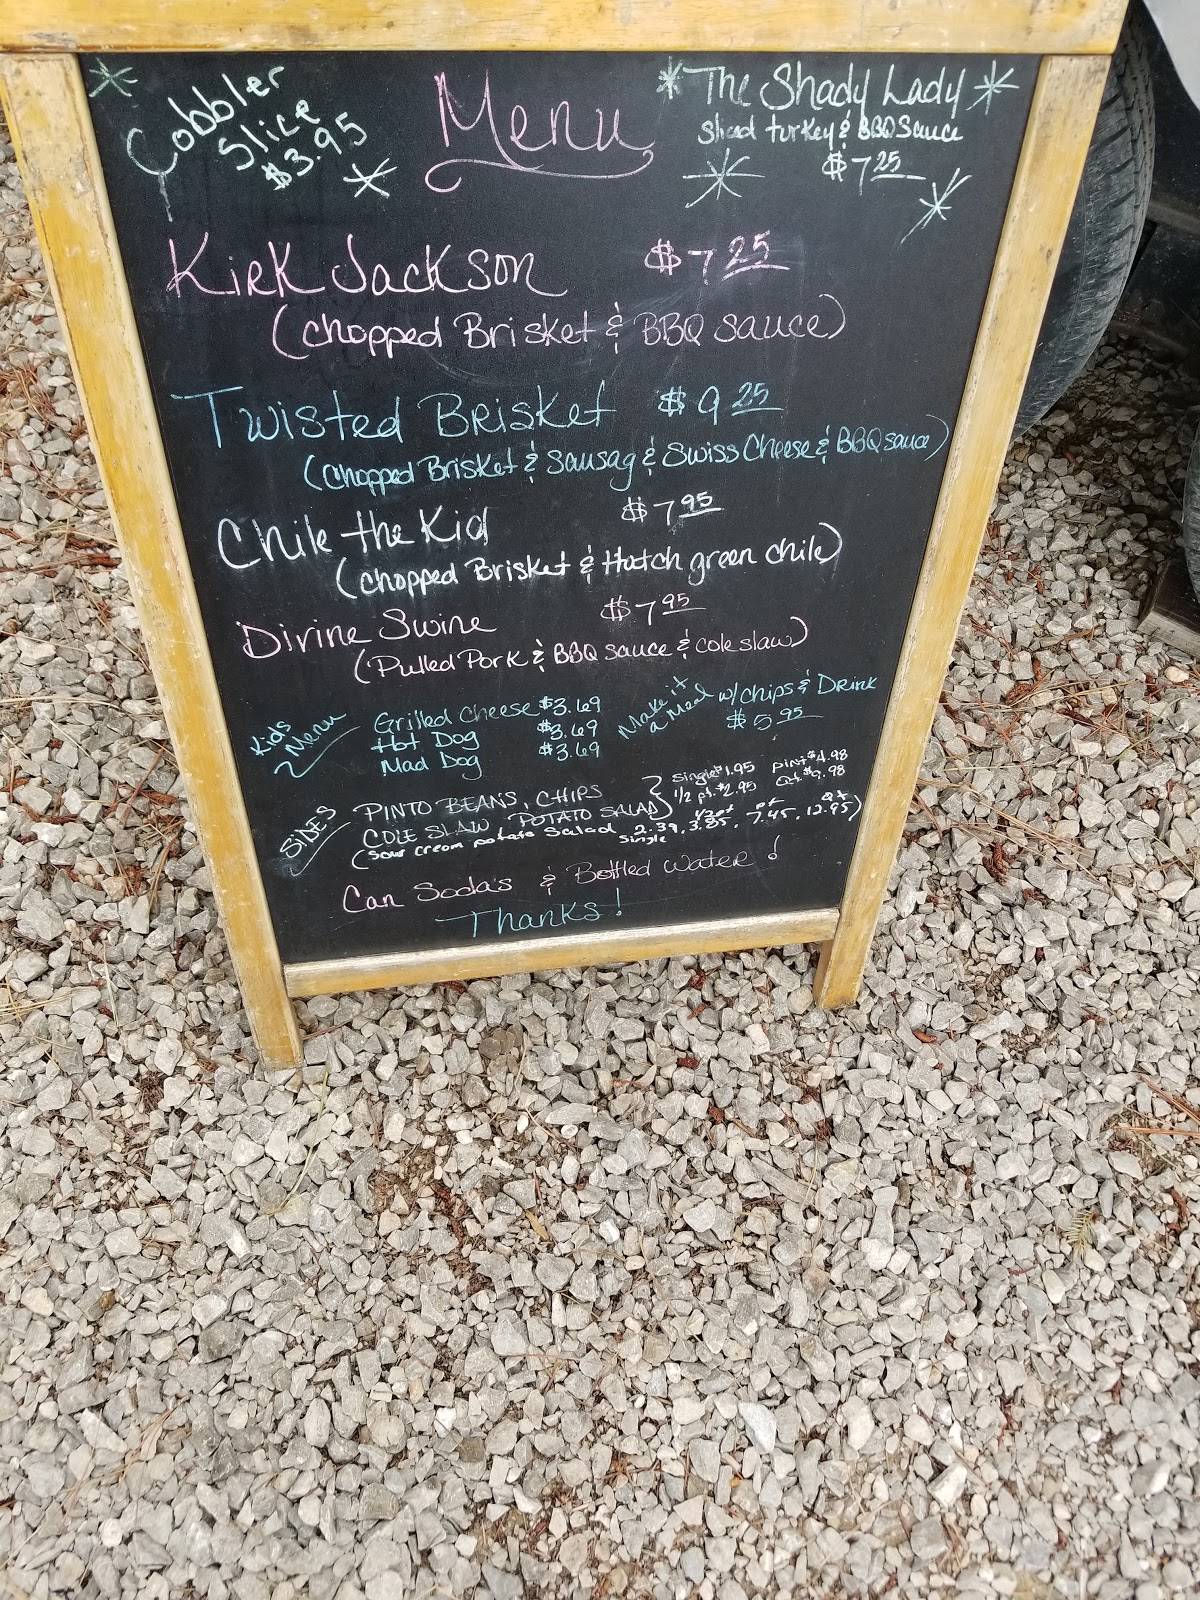 Cobbler
Slice
$3.95
Menu
The Shady Lady
turkey & BBQ Sauce
$7.25
Kirk Jackson $7.25
(chopped Brisket & BBQ sauce)
Twisted Brisket $9.25
(chopped Brisket & Sausag & Swiss Cheese & BBQ sauce)
Chile the Kid $7.95
(chopped Brisket & Hatch green chile)
Divine Swine $7.95
(Pulled Pork & BBQ sauce & cole slaw)
Kids Menu
Grilled Cheese $3.69
Hot Dog $3.69
Mad Dog $3.69
Make it a Meal w/chips & Drink
$5.95
SIDES
PINTO BEANS, CHIPS
COLE SLAW, POTATO SALAD
Single $1.95 pint $4.98
1/2 pt. $2.95 Qt. $9.98
(sour cream potato Salad 2.39, 3.85, 7.45, 12.95)
Single 1/2 pt pt Qt
Can Soda's & Bottled Water!
Thanks!